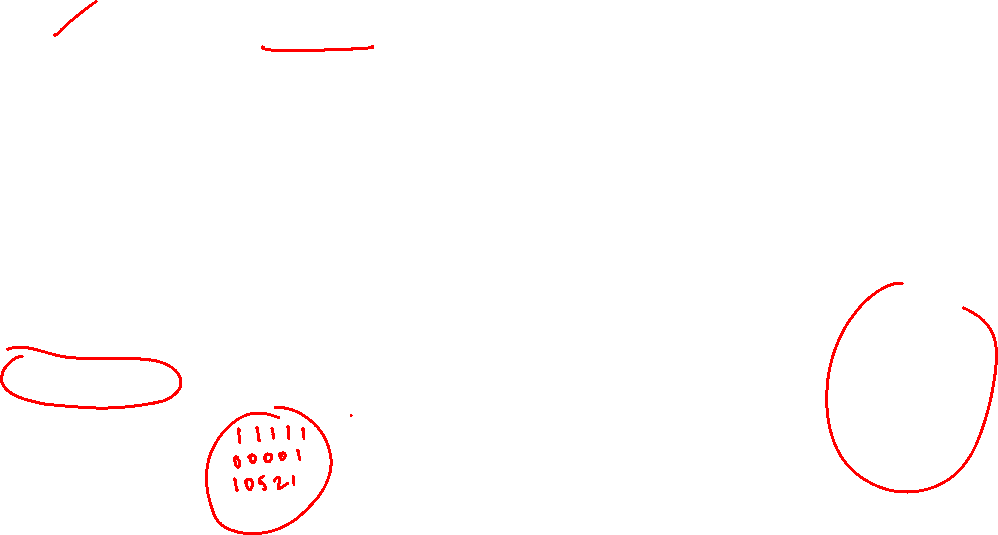 11111
00001
10521